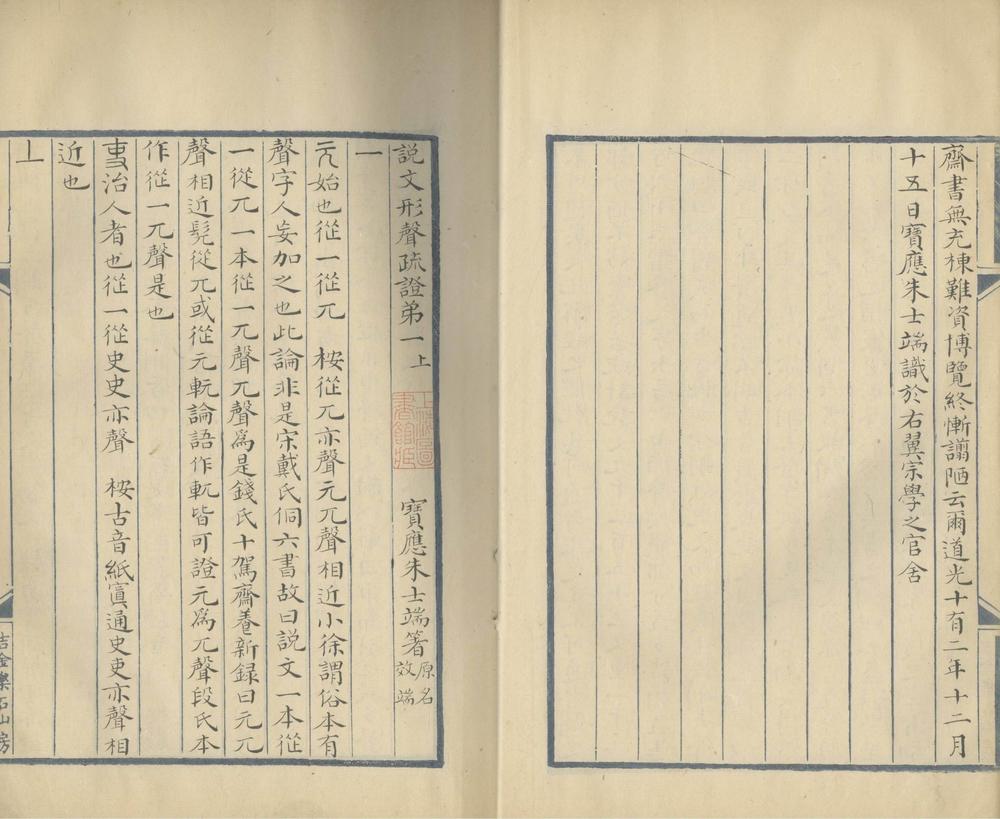 齋書無充棟難資博覽終慚謭陋云爾道光十有二年十二月
十五日寶應朱士端識於右翼宗學之官舍
說文形聲疏證弟一上
寶應朱士端箸原名效端
一
元始也從一從兀 桉從兀亦聲元兀聲相近小徐謂俗本有
聲字人妄加之也此論非是宋戴氏侗六書故曰說文一本從
一從兀一本從一兀聲兀聲爲是錢氏十駕齋養新録曰元兀
聲相近髡從兀或從元軏論語作軏皆可證元爲兀聲段氏本
作從一兀聲是也
吏治人者也從一從史史亦聲 桉古音紙寘通史吏亦聲相
近也
丄
吉金樂石山房